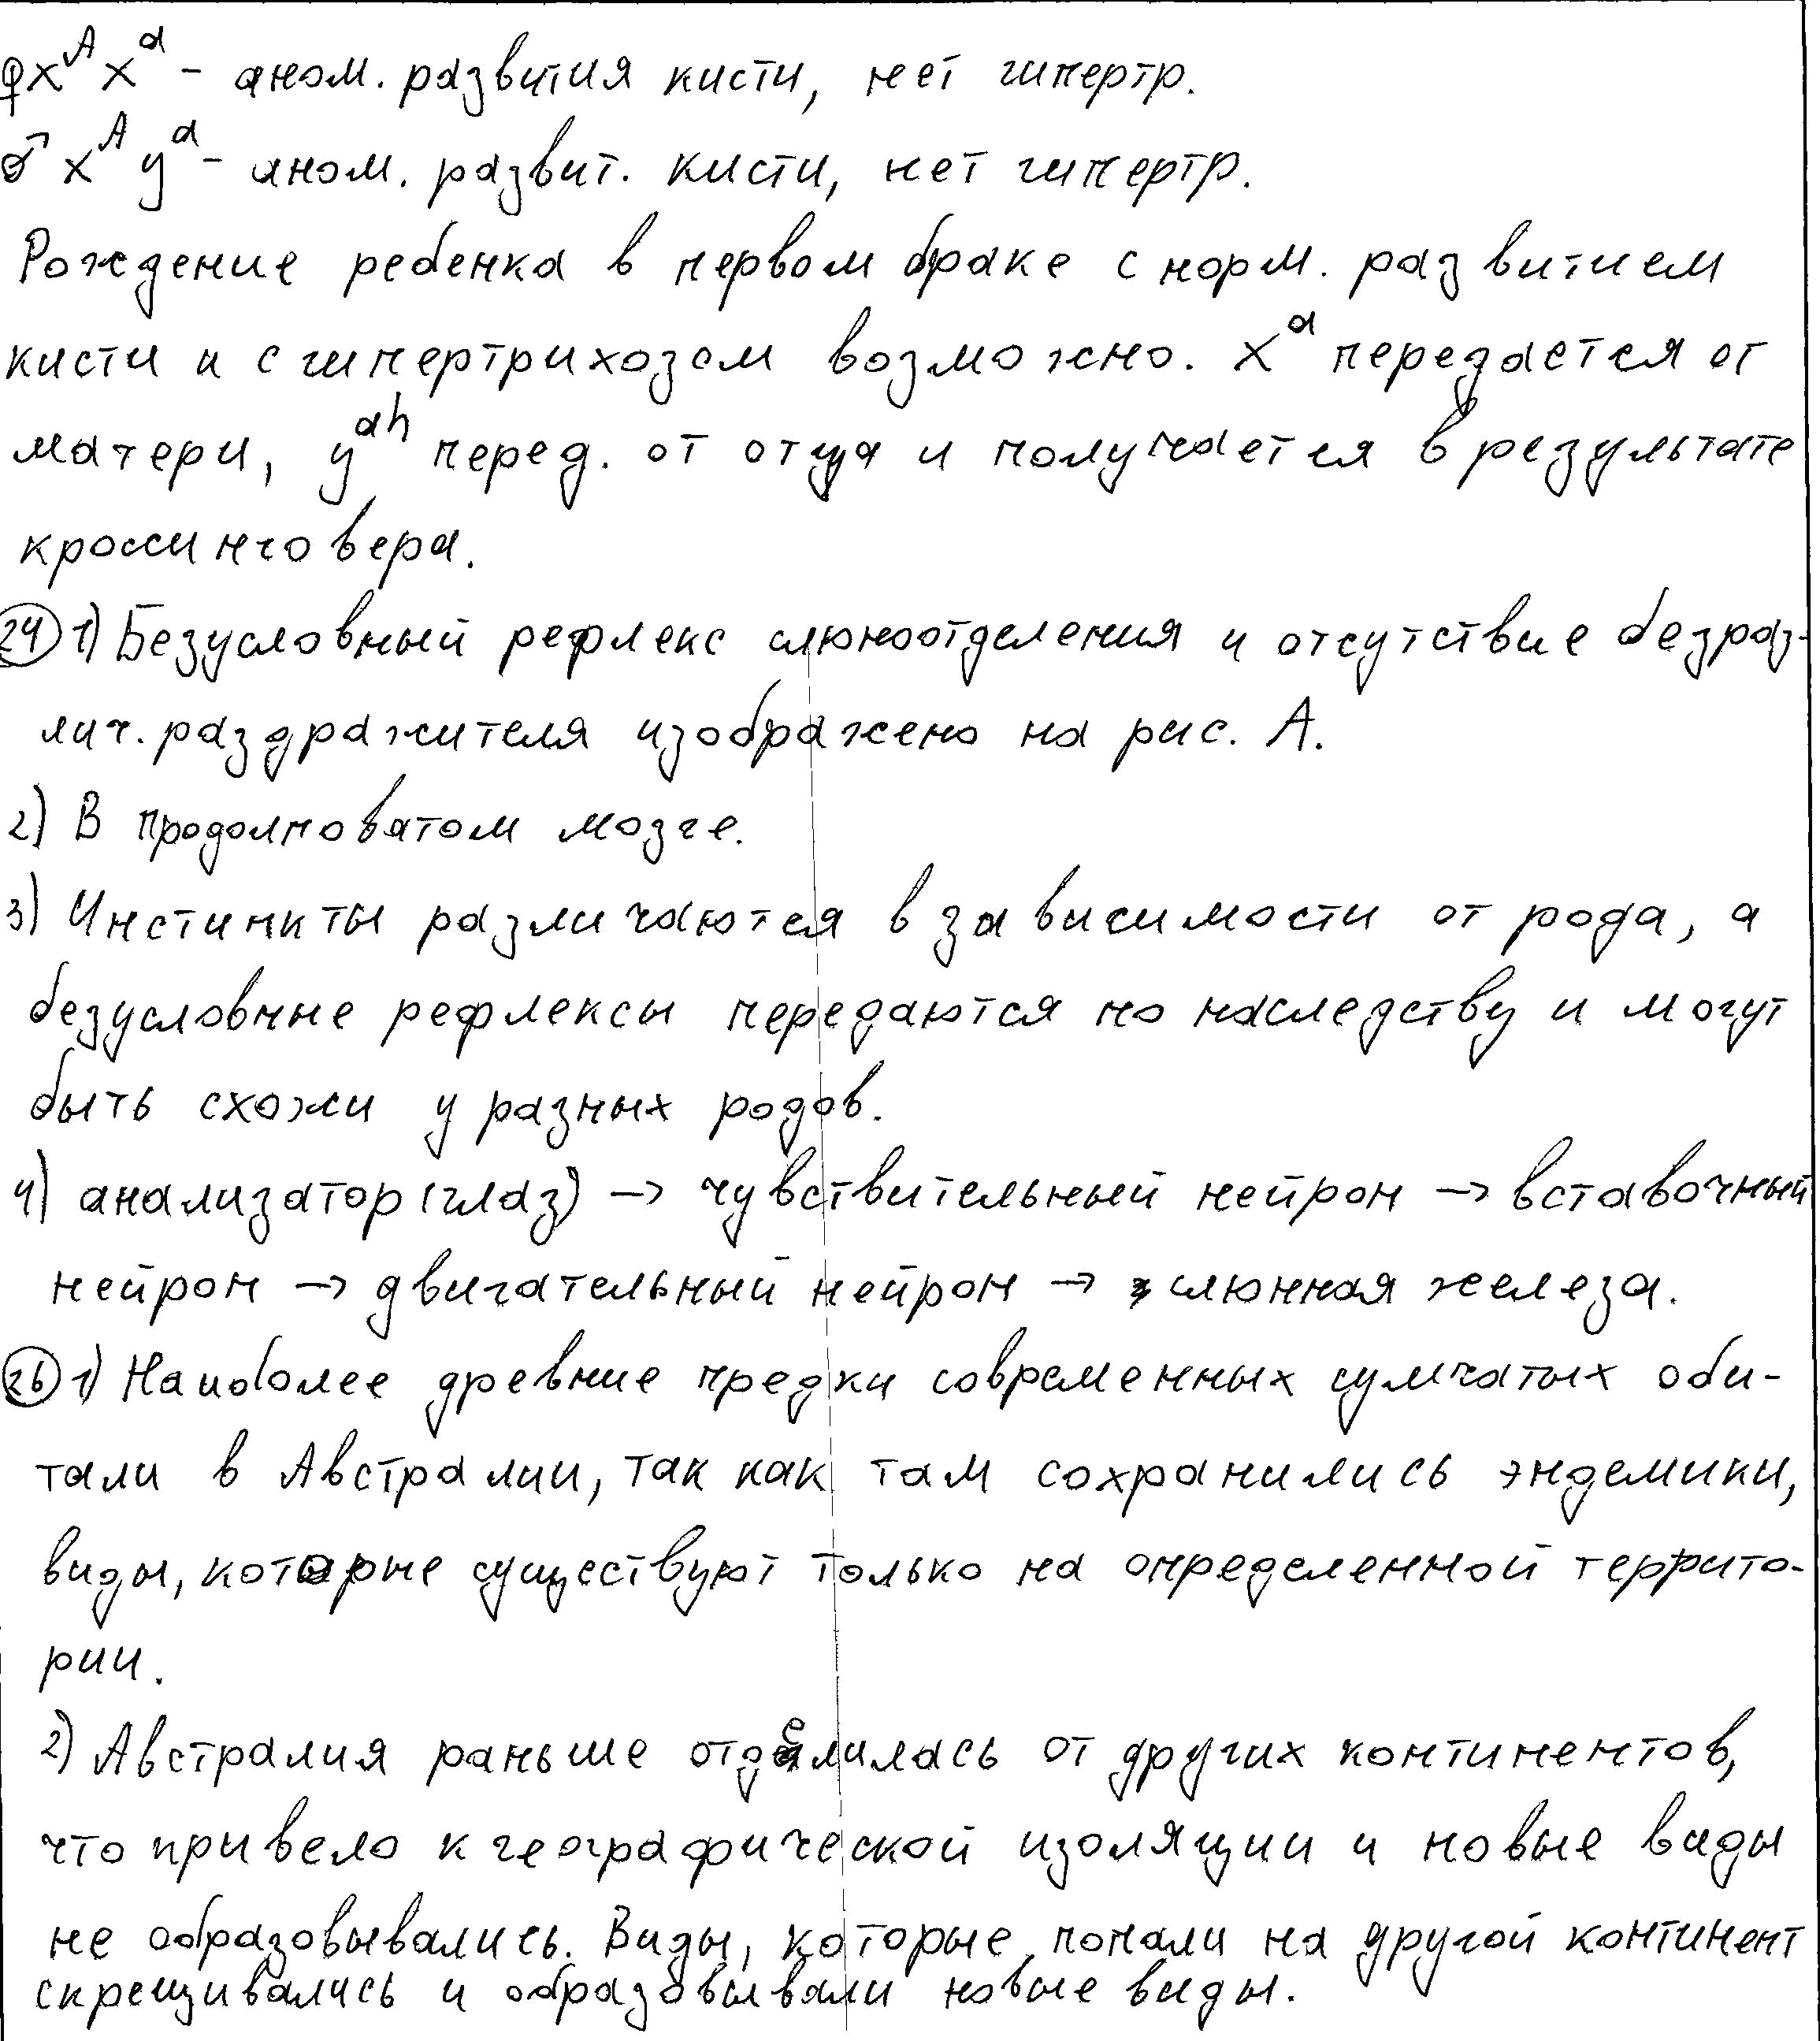 ♀ X^A X^a - аном. развития кисти, нет гипертр.
♂ X^A Y^a - аном. развит. кисти, нет гипертр.
Рождение ребенка в первом браке с норм. развитием
кисти и с гипертрихозом возможно. X^a передается от
матери, Y^ah перед. от отца и получается в результате
кроссинговера.
24 1) Безусловный рефлекс слюноотделения и отсутствие безраз-
лич. раздражителя изображено на рис. А.
2) В продолноватом мозге.
3) Инстинкты различаются в зависимости от рода, а
безусловные рефлексы передаются по наследству и могут
быть схожи у разных родов.
4) анализатор (глаз) → чувствительный нейрон → вставочный
нейрон → двигательный нейрон → слюнная железа.
26 1) Наиболее древние предки современных сумчатых оби-
тали в Австралии, так как там сохранились эндемики,
виды, которые существуют только на определенной террито-
рии.
2) Австралия раньше отделилась от других континентов,
что привело к географической изоляции и новые виды
не образовывались. Виды, которые попали на другой континент
скрещивались и образовывали новые виды.